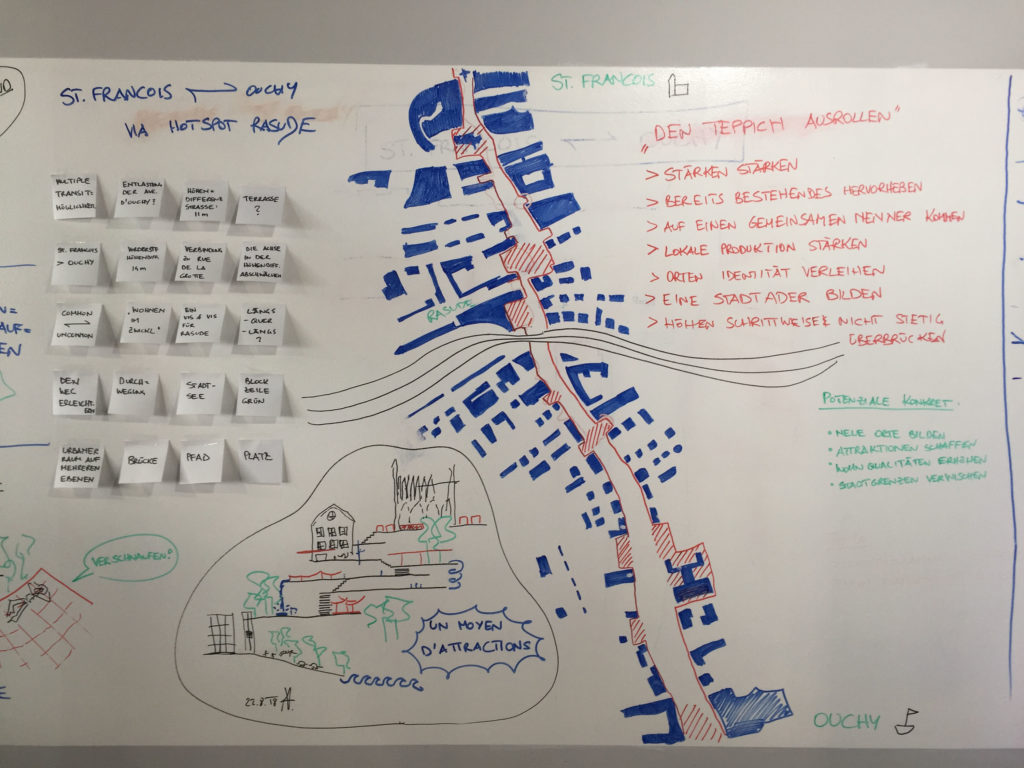 ST. FRANCOIS OUCHY
VIA HOTSPOT RASUDE
MULTIPLE
TRANSIT=
MÖGLICHKEIT
ENTLASTEN
DER AVE.
D'OUCHY!
HÖHEN=
DIFFERENZ
STRASSE:
11m
TERRASSE
?
ST. FRANCOIS
> OUCHY
HÖHENDIFF.
VERBINDUNG
ZU RUE
DE LA
GROTTE
DIE ACHSE
IN DER
HÖHENDIFF.
ABSCHWÄCHEN
COMMON
UNCOMMON
"WOHNEN
IM
ZWICKL"
EIN
VIS À VIS
FÜR
RASUDE
LÄNGS
-QUER
-LÄNGS
?
DEN
WEG
ERLEICHT-
ERN
DURCH-
WEGUNG
STADT-
SEE
BLOCK
ZEILE
GRÜN
URBANER
RAUM AUF
MEHREREN
EBENEN
BRÜCKE
PFAD
PLATZ
VERSCHNAUFEN!
UN MOYEN
D'ATTRACTIONS
22.8.18
RASUDE
ST. FRANCOIS
"DEN TEPPICH AUSROLLEN"
> STÄRKEN STÄRKEN
> BEREITS BESTEHENDES HERVORHEBEN
> AUF EINEN GEMEINSAMEN NENNER KOMMEN
> LOKALE PRODUKTION STÄRKEN
> ORTEN IDENTITÄT VERLEIHEN
> EINE STADTADER BILDEN
> HÖHEN SCHRITTWEISE & NICHT STETIG
ÜBERBRÜCKEN
POTENZIALE KONKRET.
• NEUE ORTE BILDEN
• ATTRAKTIONEN SCHAFFEN
• WOHNQUALITÄTEN ERHÖHEN
• STADTGRENZEN VERWISCHEN
OUCHY